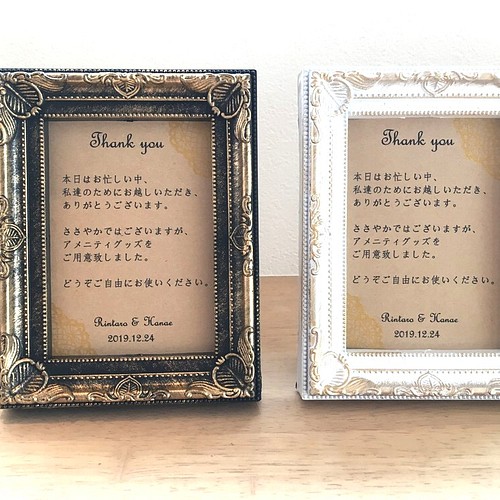 Thank you
本日はお忙しい中、
私達のためにお越しいただき、
ありがとうございます。
ささやかではございますが、
アメニティグッズを
ご用意致しました。
どうぞご自由にお使いください。
Rintaro & Hanae
2019.12.24
Thank you
本日はお忙しい中、
私達のためにお越しいただき、
ありがとうございます。
ささやかではございますが、
アメニティグッズを
ご用意致しました。
どうぞご自由にお使いください。
Rintaro & Hanae
2019.12.24